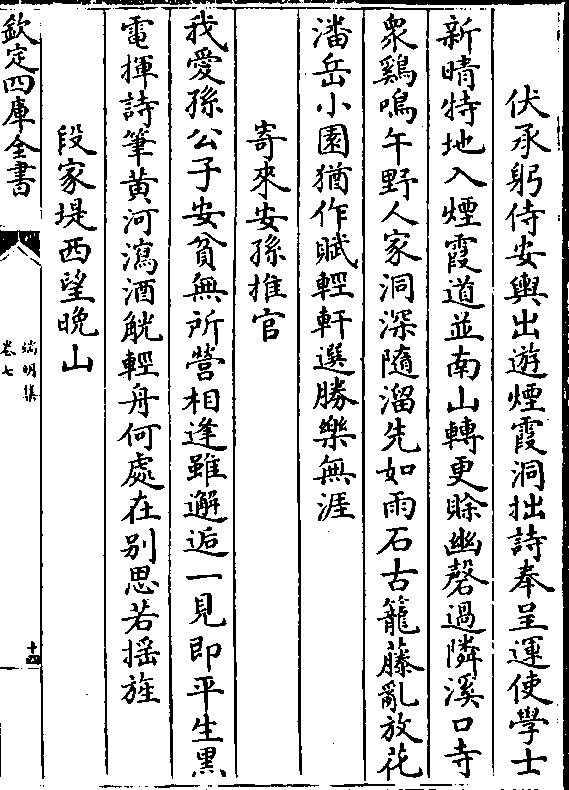 伏承躬侍安輿出遊煙霞洞拙詩奉呈運使學士
新晴特地入煙霞道並南山轉更賖幽磬過隣溪口寺
衆鷄鳴午野人家洞深隨溜先如雨石古籠藤亂放花
潘岳小園猶作賦輕軒選勝樂無涯
寄來安孫推官
我愛孫公子安貧無所營相逢雖邂逅一見即平生黒
電揮詩筆黄河瀉酒觥輕舟何處在别思若揺旌
段家堤西望晩山
欽定四庫全書
端明集
卷七
十四